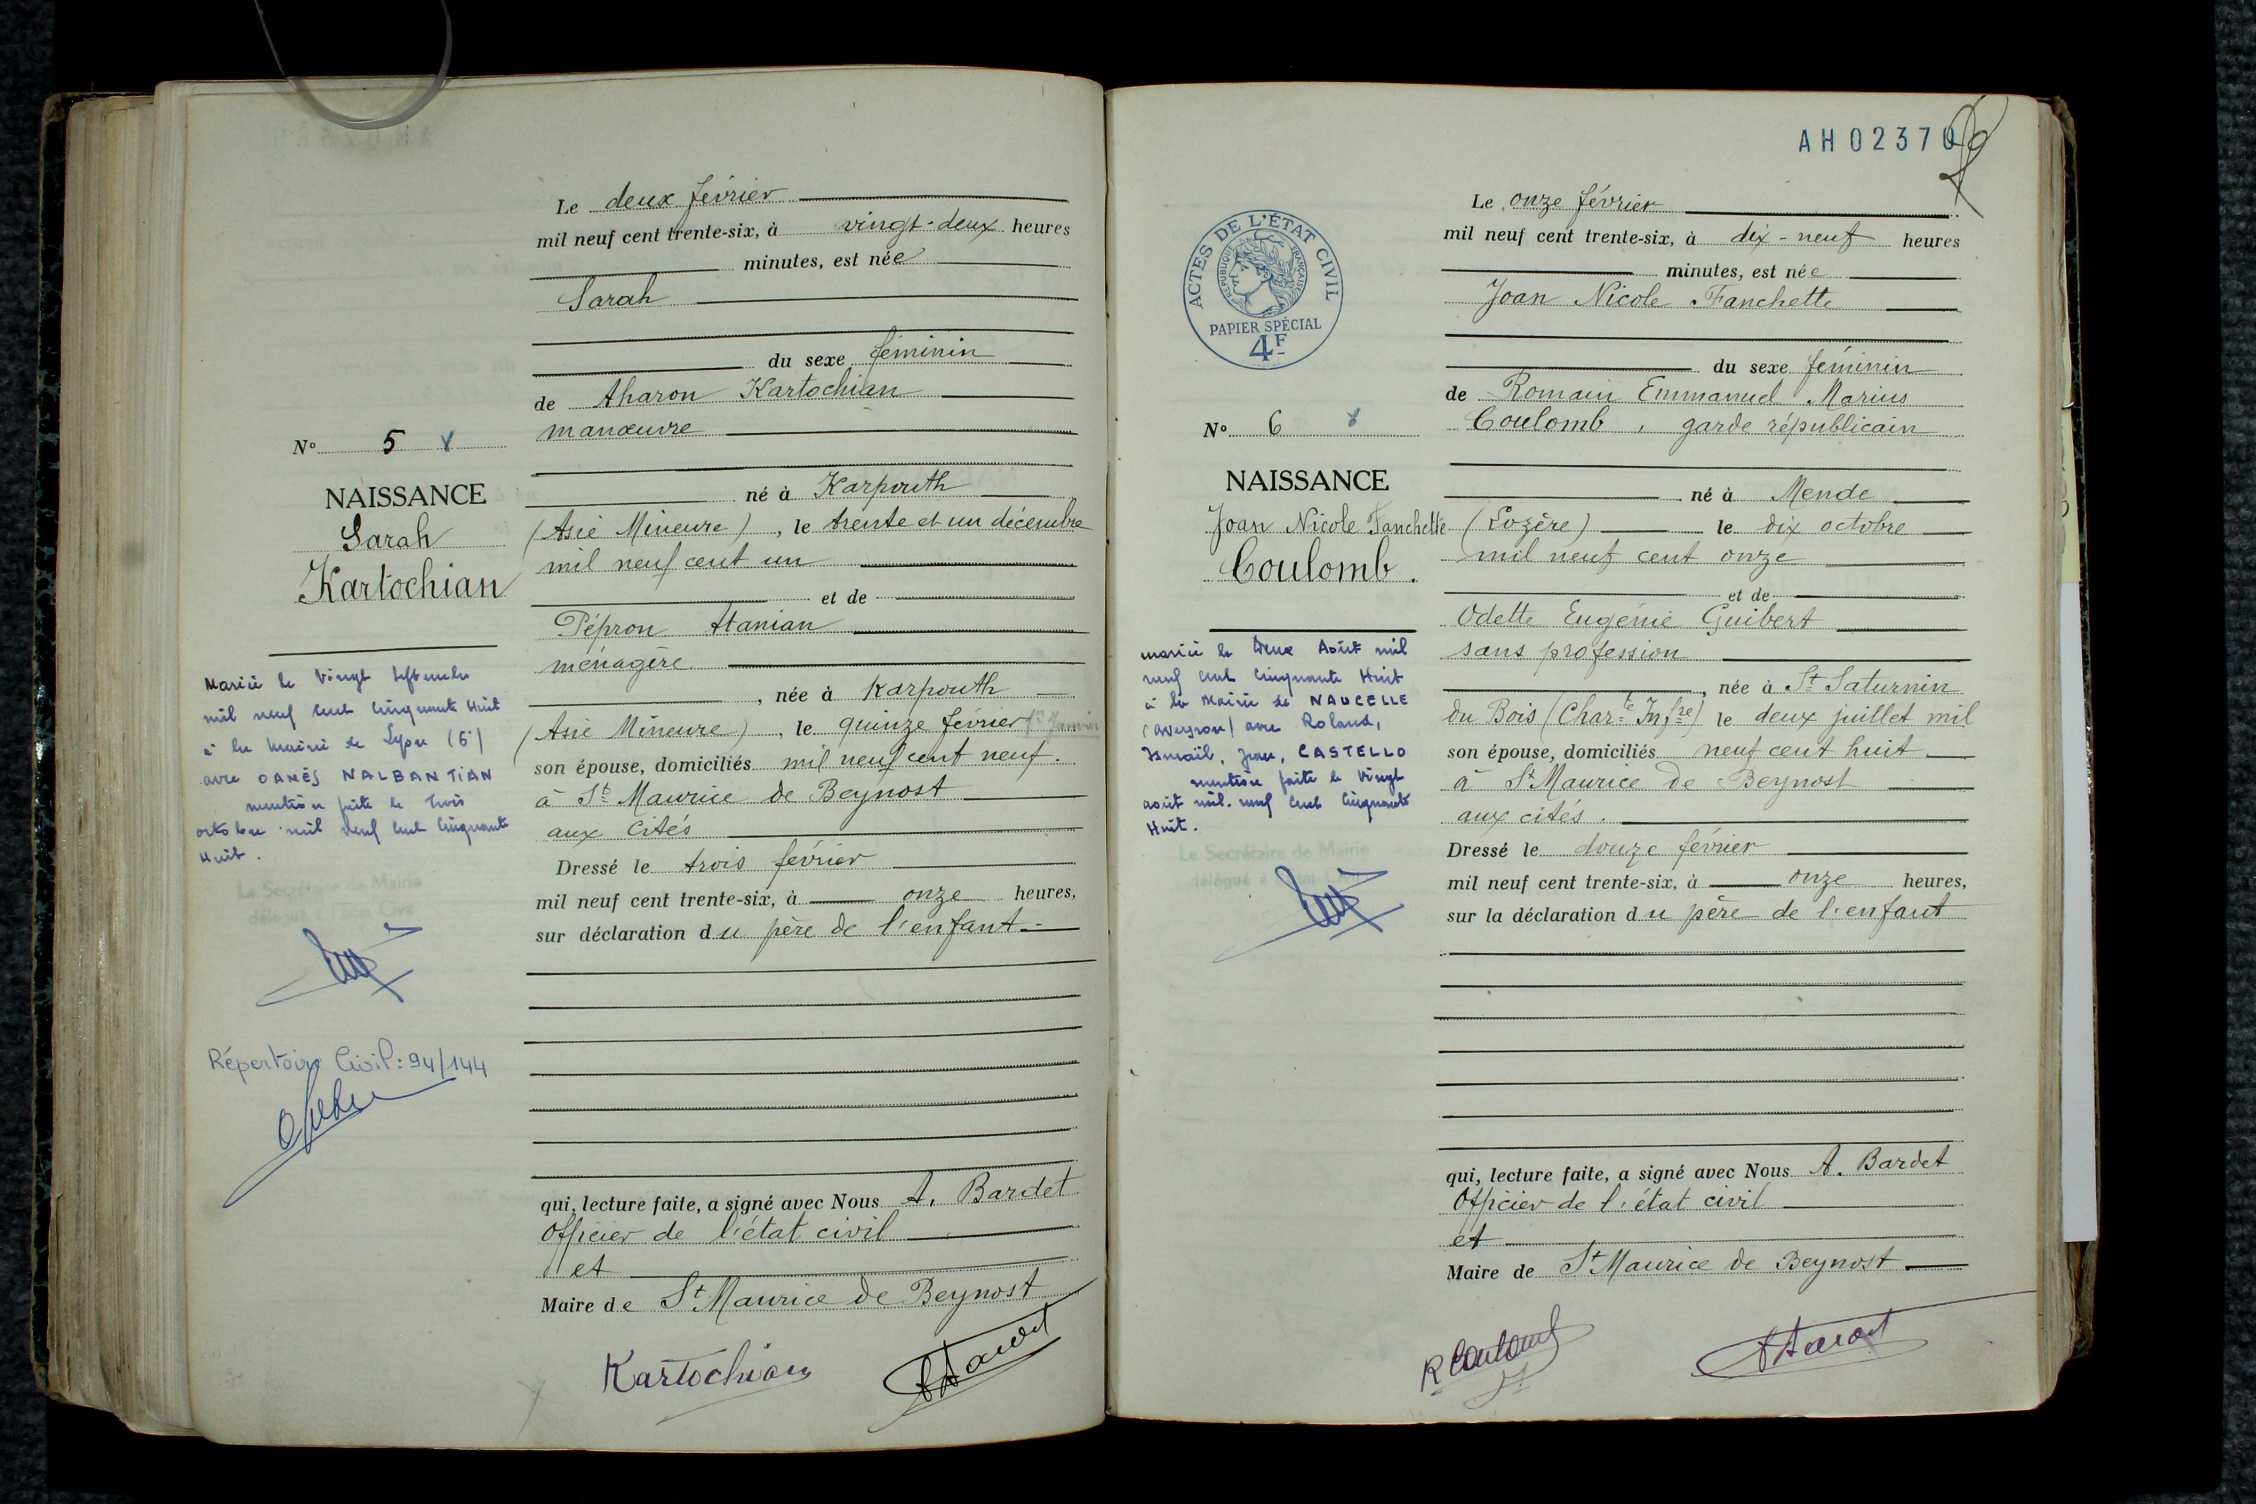 Le deux février
mil neuf cent trente-six, à vingt-deux heures
minutes, est née
Sarah
du sexe féminin
de Aharon Kartochian
manœuvre
né à Karpouth
(Asie Mineure), le trente et un décembre
mil neuf cent un
et de
Pépron Atanian
ménagère
, née à Karpouth
(Asie Mineure), le quinze février
son épouse, domiciliés mil neuf cent neuf.
à St Maurice de Beynost
aux Cités
Dressé le trois février
mil neuf cent trente-six, à onze heures,
sur déclaration du père de l'enfant
qui, lecture faite, a signé avec Nous A. Bardet
Officier de l'état civil
et
Maire de St Maurice de Beynost
Kartochian
N° 5
NAISSANCE
Sarah
Kartochian
Mariée le Vingt Septembre
mil neuf cent cinquante Huit
à la mairie de Lyon (6e)
avec OANÈS NALBANTIAN
mention faite le trois
octobre mil neuf cent cinquante
Huit.
Le Secrétaire de Mairie
délégué à l'Etat Civil
Répertoire Civil : 94/144
AH02370
ACTES DE L'ÉTAT CIVIL
RÉPUBLIQUE FRANÇAISE
PAPIER SPÉCIAL
4F
N° 6
NAISSANCE
Joan Nicole Fanchette
Coulomb.
mariée le Deux Août mil
neuf cent cinquante Huit
à la Mairie de NAUCELLE
(Aveyron) avec Roland,
Ismaël, Jean, CASTELLO
mention faite le Vingt
août mil. neuf cent cinquante
Huit.
Le Secrétaire de Mairie
délégué à l'Etat Civil
Le onze février
mil neuf cent trente-six, à dix-neuf heures
minutes, est née
Joan Nicole Fanchette
du sexe féminin
de Romain Emmanuel Marius
Coulomb, garde républicain
né à Mende
(Lozère) le dix octobre
mil neuf cent onze
et de
Odette Eugénie Guibert
sans profession
, née à St Saturnin
du Bois (Charte Infre) le deux juillet mil
son épouse, domiciliés neuf cent huit
à St Maurice de Beynost
aux cités.
Dressé le douze février
mil neuf cent trente-six, à onze heures,
sur la déclaration du père de l'enfant
qui, lecture faite, a signé avec Nous A. Bardet
Officier de l'état civil
et
Maire de St Maurice de Beynost
R Coulomb